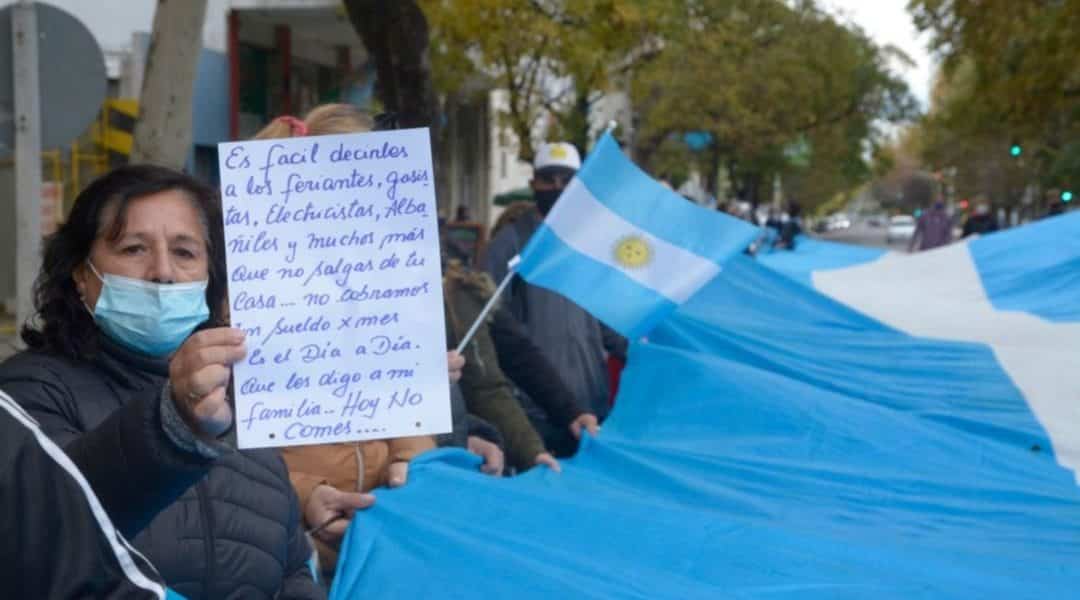 Es facil decirles
a los feriantes, gasis-
tas, Electricistas, Alba-
ñiles y muchos más
Que no salgas de tu
Casa... no cobramos
un sueldo x mes
Es el Día a Día.
Que les digo a mi
familia... Hoy No
comes....